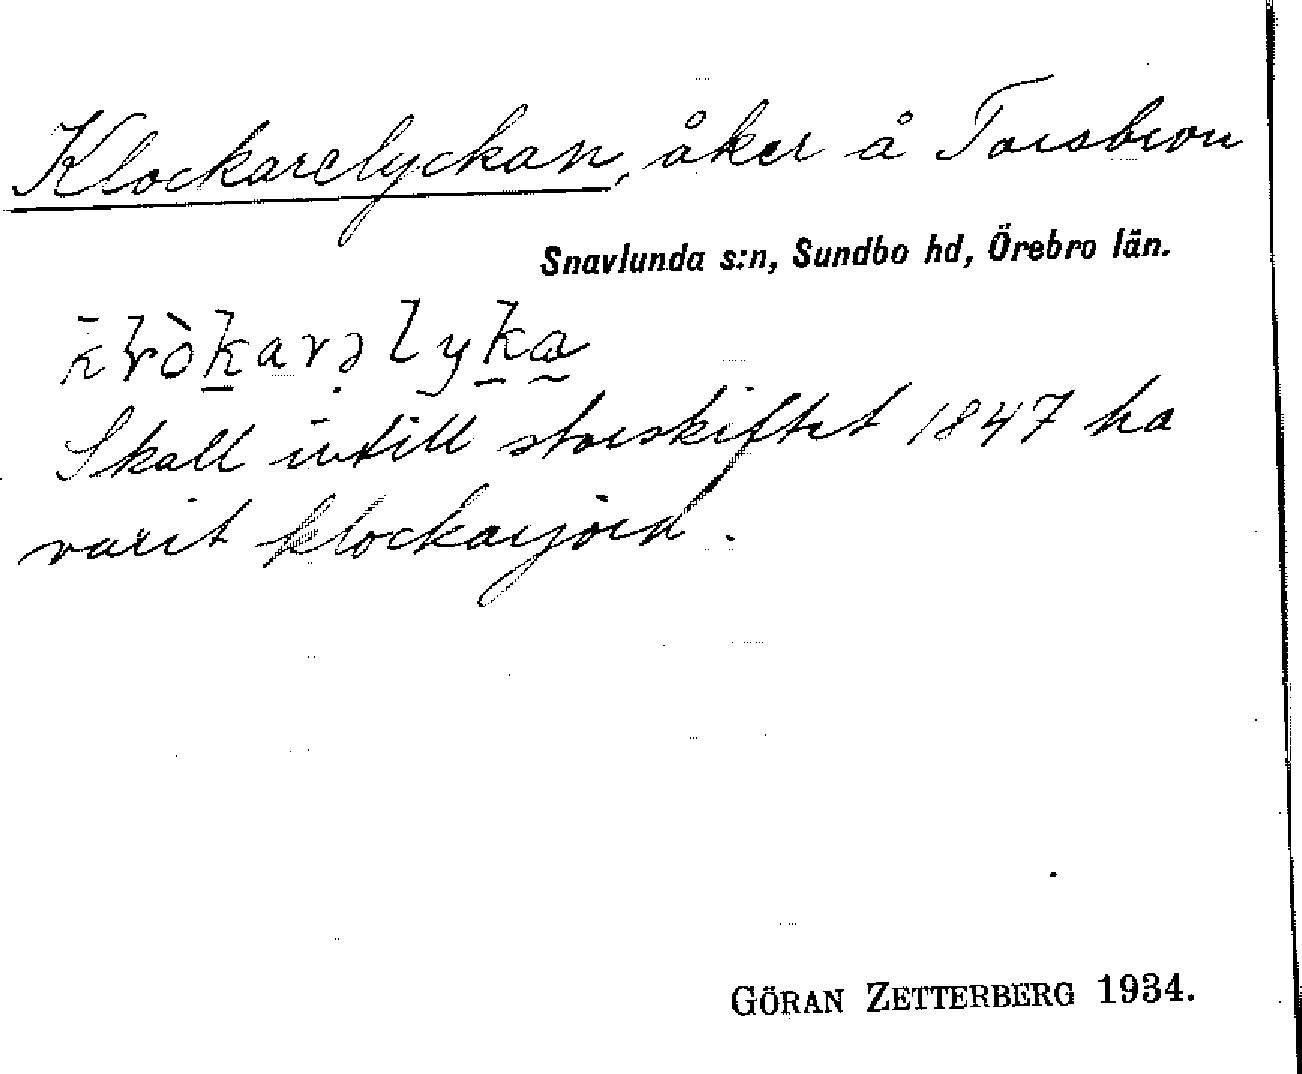 Klockarelyckan, åker å Torsbron
Snavlunda s:n, Sundbo hd, Örebro län.
Skall intill storskiftet 1847 ha
varit klockarjord.
GÖRAN ZETTERBERG 1934.